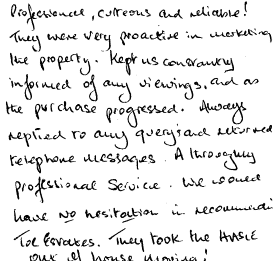 Professional, curteous and reliable!
They were very proactive in marketing
the property. Kept us constantly
informed of any viewings, and as
the purchase progressed. Always
replied to any query's and returned
telephone messages. A throughly
professional Service. We would
have NO hesitation in recommendi
TOE Estates. They took the HASSLE
out of house moving!